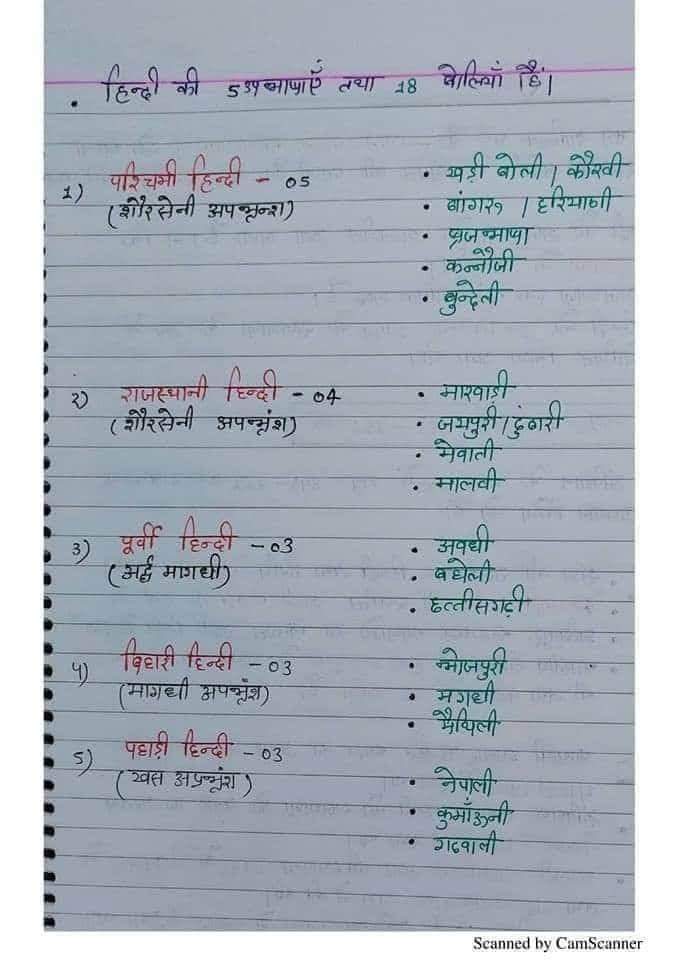 • हिन्दी की 5 उपभाषाएँ तथा 18 बोलियाँ हैं।
1) पश्चिमी हिन्दी - 05
(शौरसेनी अपभ्रन्श)
• खड़ी बोली / कौरवी
• बांगरू / हरियाणी
• ब्रजभाषा
• कन्नौजी
• बुन्देली
2) राजस्थानी हिन्दी - 04
(शौरसेनी अपभ्रंश)
• मारवाड़ी
• जयपुरी / ढुंढारी
• मेवाती
• मालवी
3) पूर्वी हिन्दी - 03
(अर्द्ध मागधी)
• अवधी
• बघेली
• छत्तीसगढ़ी
4) बिहारी हिन्दी - 03
(मागधी अपभ्रंश)
• भोजपुरी
• मगधी
• मैथिली
5) पहाड़ी हिन्दी - 03
(खस अपभ्रंश)
• नेपाली
• कुमाँऊनी
• गढवाली
Scanned by CamScanner